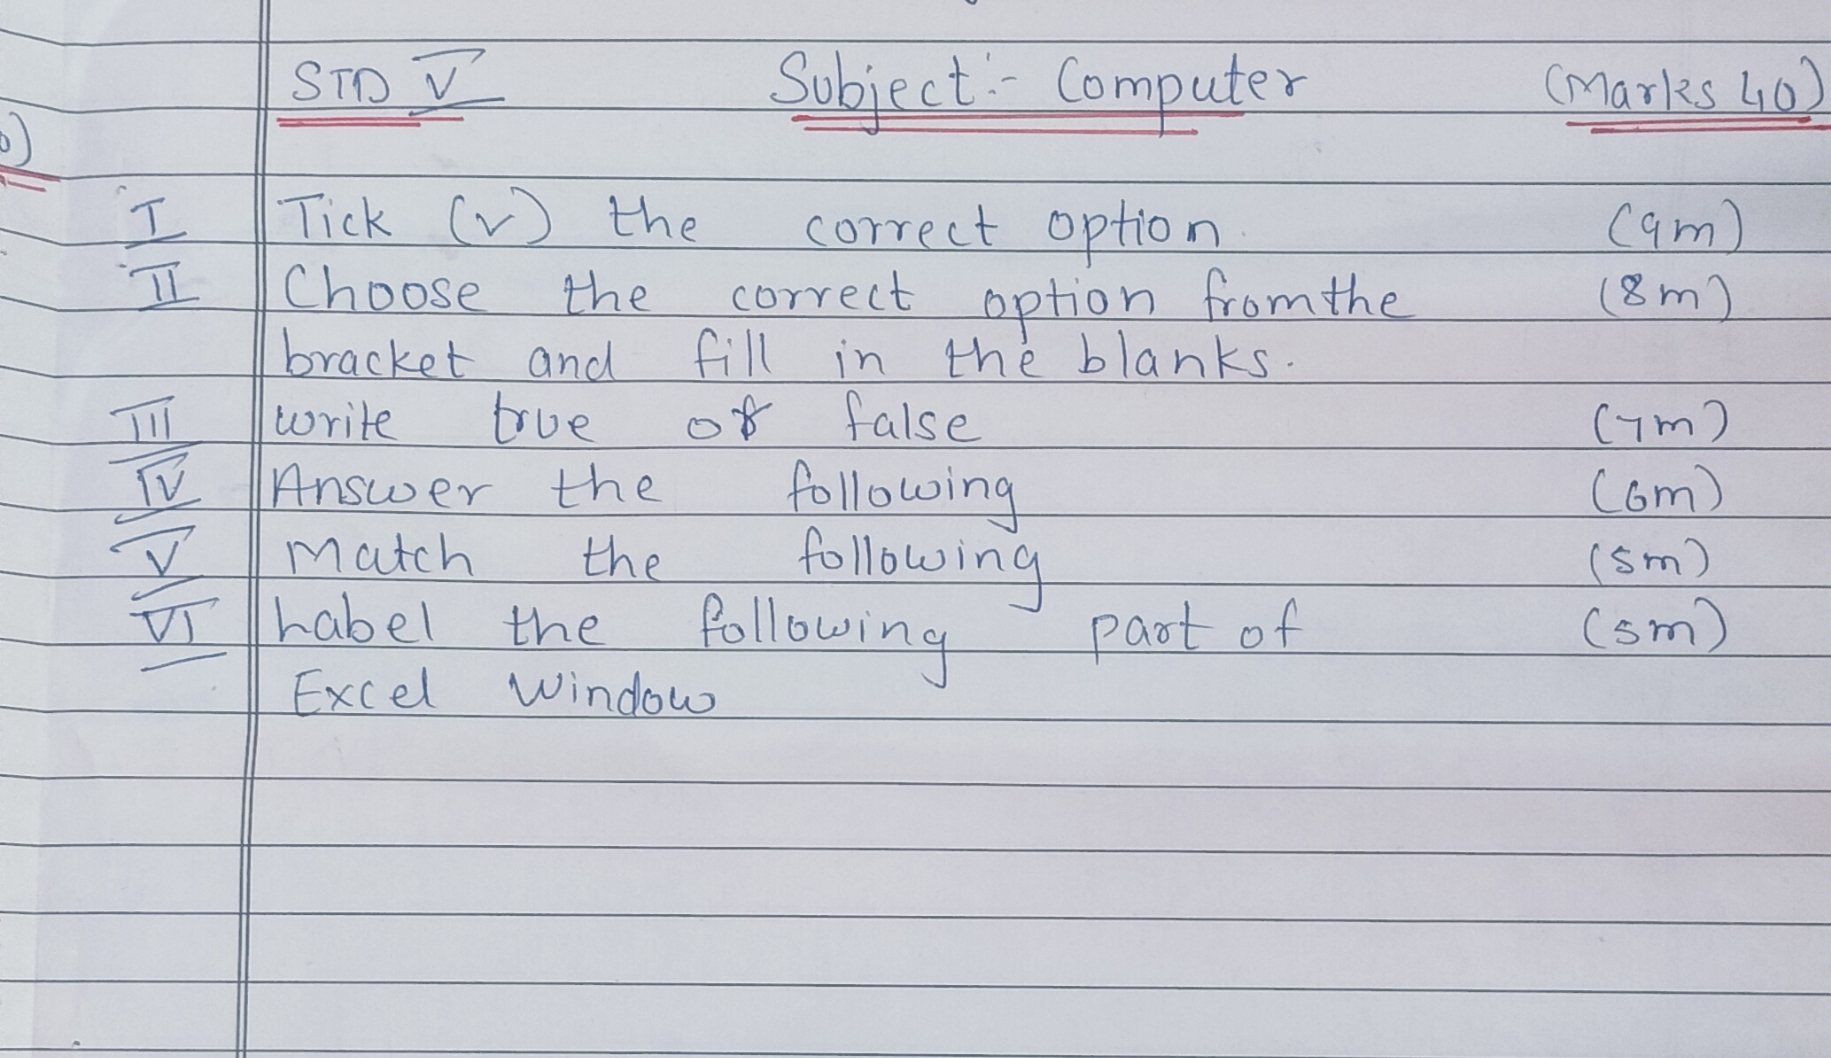 STD V Subject:- Computer (Marks 40)
I Tick (✓) the correct option. (9m)
II Choose the correct option from the (8m)
bracket and fill in the blanks.
III write true or false (7m)
IV Answer the following (6m)
V Match the following (5m)
VI Label the following part of (5m)
Excel Window